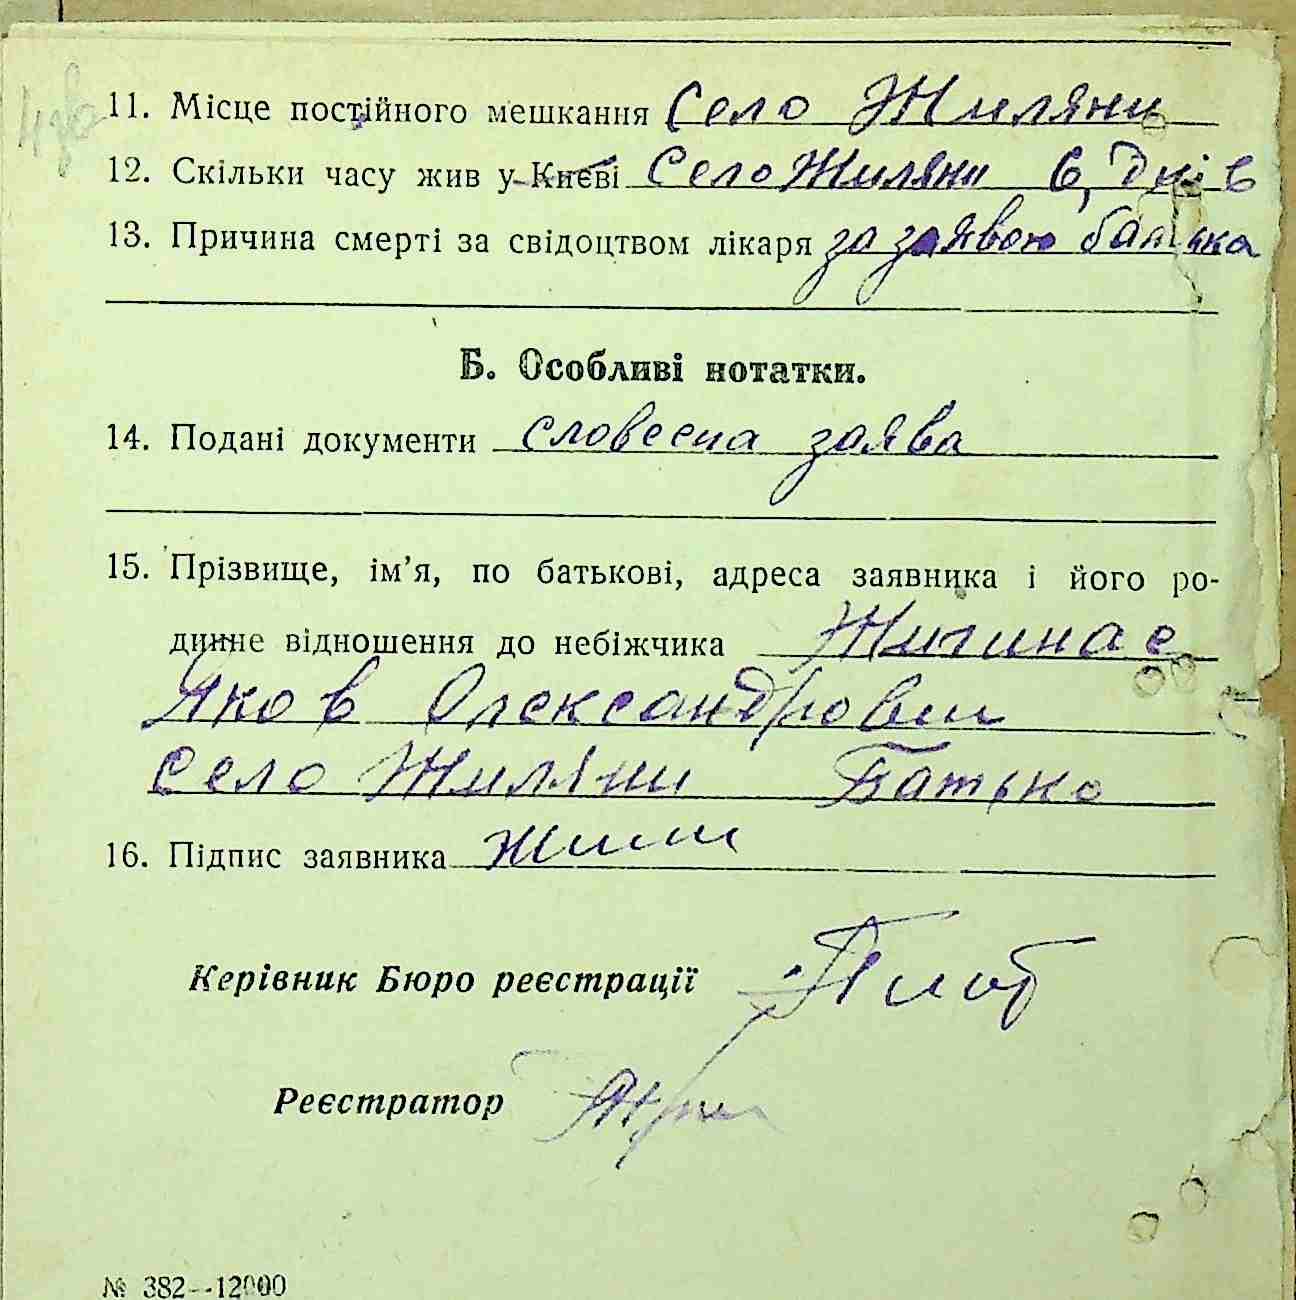 11. Місце постійного мешкання Село Жиляни
12. Скільки часу жив у Києві Село Жиляни 6, Днів
13. Причина смерті за свідоцтвом лікаря за заявою батька
Б. Особливі нотатки.
14. Подані документи словесна заява
15. Прізвище, ім’я, по батькові, адреса заявника і його ро-
динне відношення до небіжчика
Яков Олександрович
село Жиляни Батько
16. Підпис заявника
Керівник Бюро реєстрації
Реєстратор
№ 382--12000